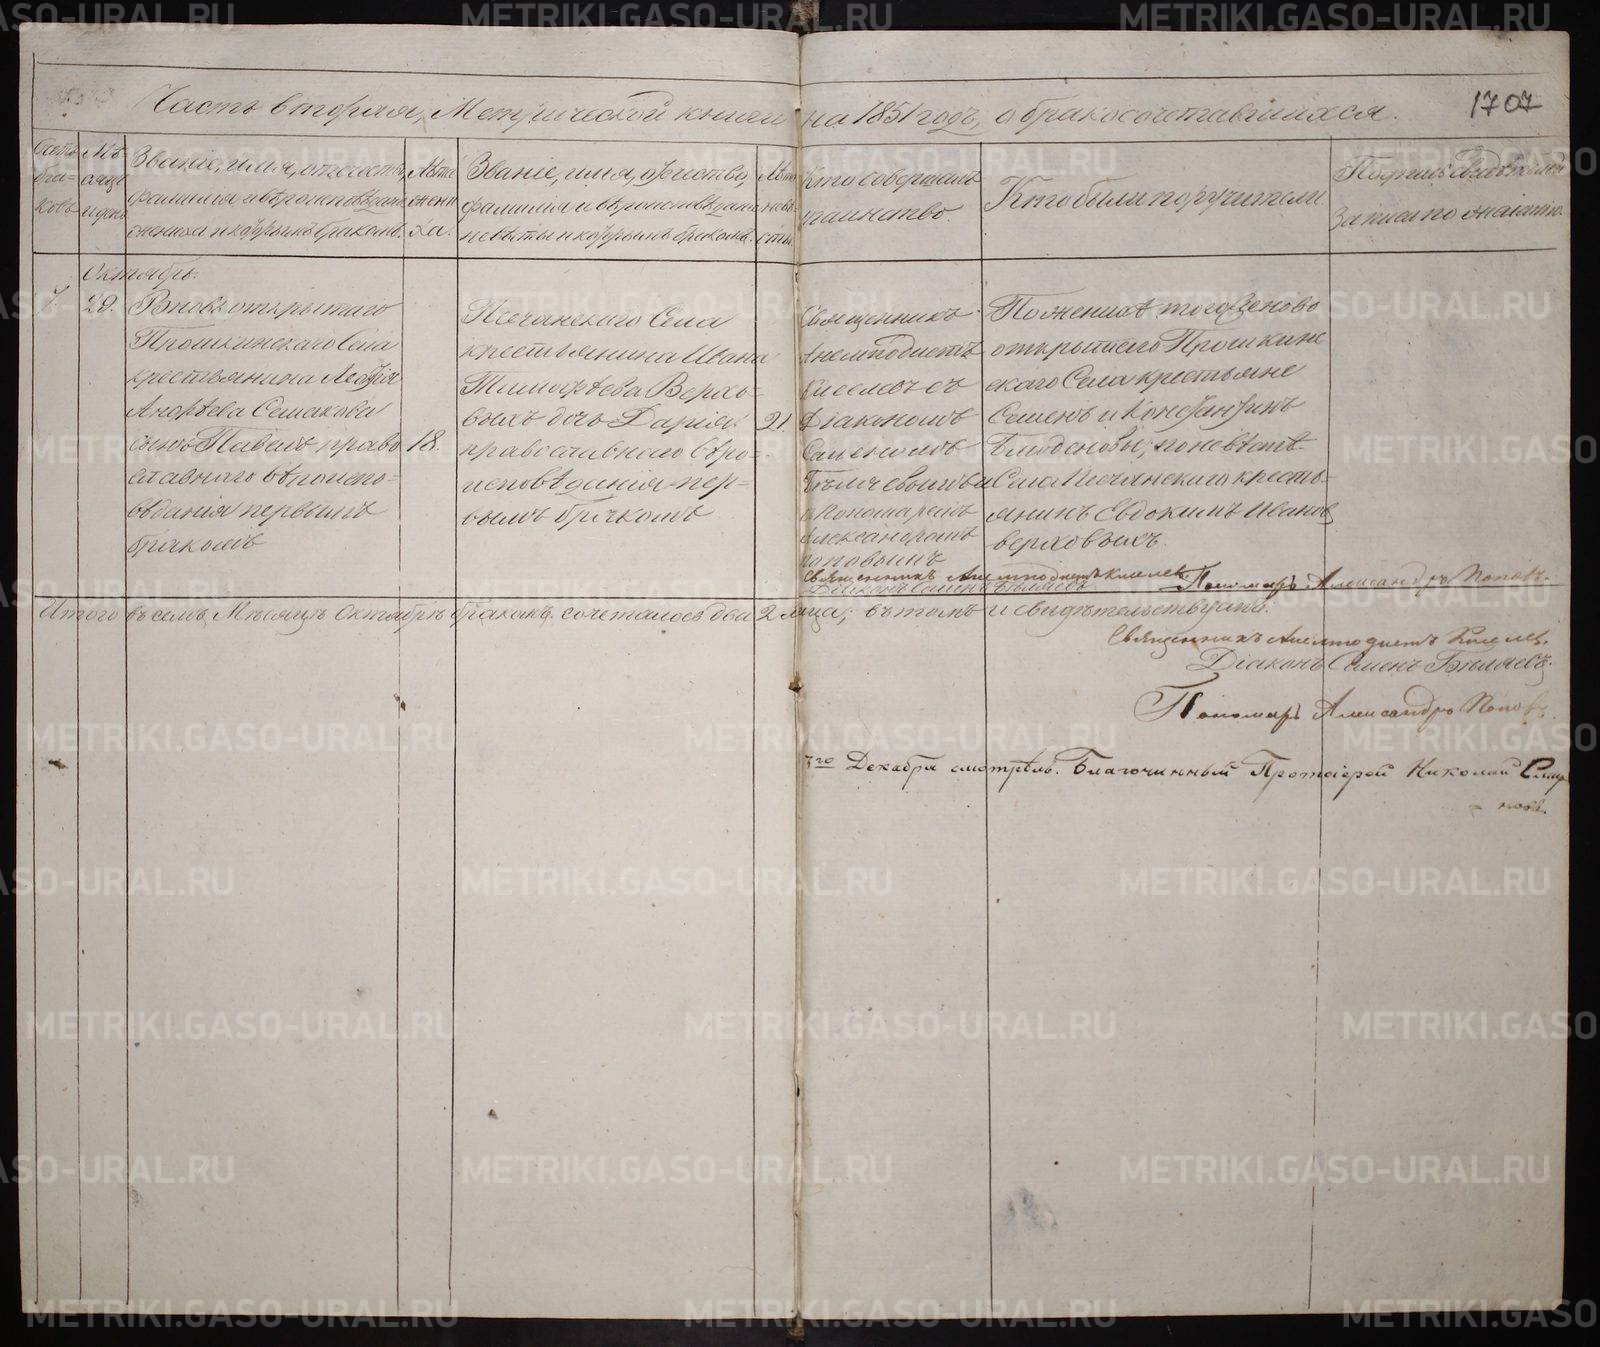 METRIKI.GASO-URAL.RU
1707
Часть вторая, Метрической книги на 1851 годъ, о бракосочетавшихся.
Счетъ браковъ
Мѣсяцъ и день
Званіе, имя, отчество,
фамилія и вѣроисповѣданіе
жениха и которымъ бракомъ.
Лѣта жениха.
Званіе, имя, отчество,
фамилія и вѣроисповѣданіе
невѣсты и которымъ бракомъ.
Лѣта невѣсты
Кто совершалъ
таинство.
Кто были поручители
Подпись свидѣтелей
записи по желанію.
Октябрь:
29.
Вновь открытаго
Прошкинскаго Села
крестьянина
Андрѣева Семакова
сынъ Павелъ право
славнаго вѣроиспо-
вѣданія первымъ
бракомъ
18.
Песчанскаго Села
крестьянина Ивана
Тимофѣева Верхо-
выхъ дочь Дарія
православнаго вѣро-
исповѣданія пер-
вымъ бракомъ
21.
Священникъ
Анемподистъ
Киселевъ съ
Діакономъ
Симеономъ
и Пономаремъ
Александромъ
Поповымъ
По женихѣ того вново
открытаго Прошкин
скаго Села крестьяне
Семенъ и Константинъ
по невѣстѣ
Села Песчанскаго кресть-
янинъ Евдокимъ Ивановъ
Верховыхъ.
Священникъ Анемподистъ Киселев
Діаконъ Семенъ Бѣляевъ
Пономарь Александръ Поповъ.
Итого въ семъ Мѣсяцѣ Октябрѣ бракомъ сочеталось два 2 лица; въ томъ и свидѣтельствуемъ.
Священникъ Анемподистъ Киселев.
Діаконъ Семенъ Бѣляевъ.
Пономарь Александръ Поповъ.
7го Декабря смотрѣлъ. Благочинный Протоіерей Николай Смир
= новъ.